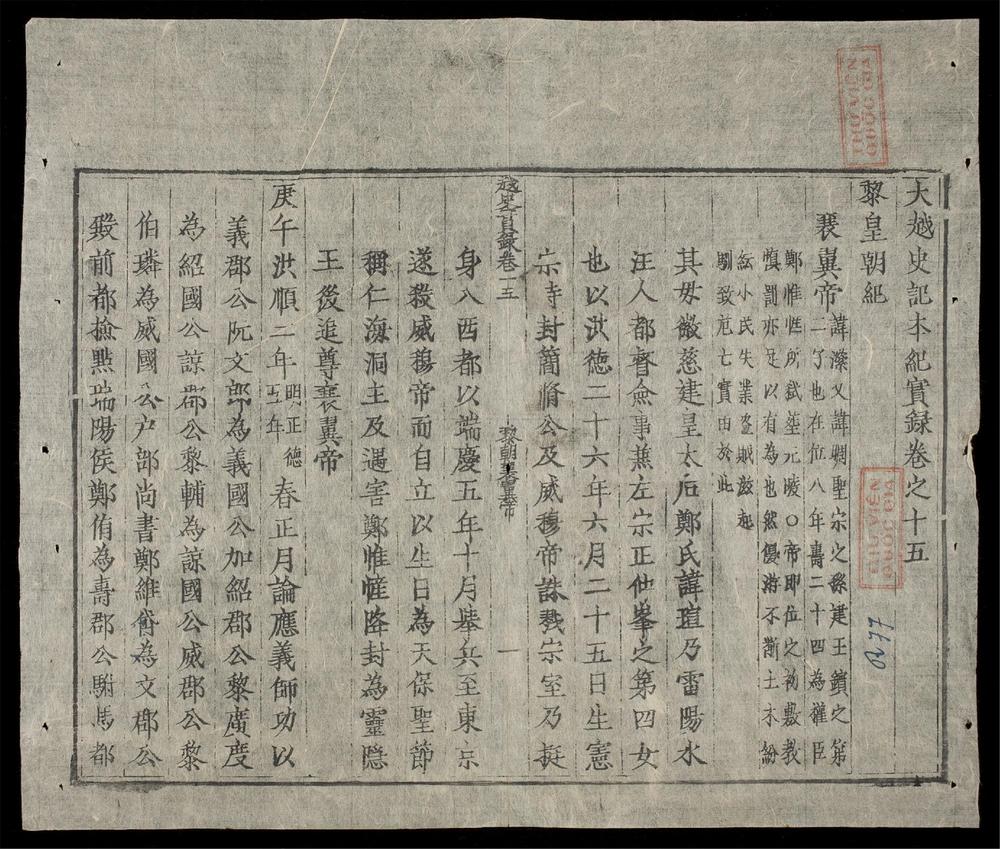 大越史記本紀實録卷之十五
黎皇朝紀
襄翼帝
諱瀠又諱晭聖宗之孫建王鑌之第
二子也在位八年壽二十四為權臣
鄭惟㦃所弑塟元陵〇帝即位之初敷教
慎罰亦足以有為也然優游不斷土木紛
紜小民失業盗賊滋起
馴致危亡實由於此
其母徽慈建皇太后鄭氏諱瑄乃雷陽水
汪人都督僉事兼左宗正仕峯之第四女
也以洪德二十六年六月二十五日生憲
宗寺封簡脩公及威穆帝誅戮宗室乃挺
越史實録卷十五
黎朝襄翼帝
一
身入西都以端慶五年十月舉兵至東京
遂殺威穆帝而自立以生日為天保聖節
稱仁海洞主及遇害鄭惟㦃降封為靈隐
王後追尊襄翼帝
庚午洪順二年
明正德
五年
春正月論應義師功以
義郡公阮文郎為義國公加紹郡公黎廣度
為紹國公諒郡公黎輔為諒國公威郡公黎
伯璘為威國公户部尚書鄭維岱為文郡公
殿前都撿㸃瑞陽侯鄭侑為壽郡公駙馬都
THƯ VIỆN
QUỐC GIA
THƯ VIỆN
QUỐC GIA